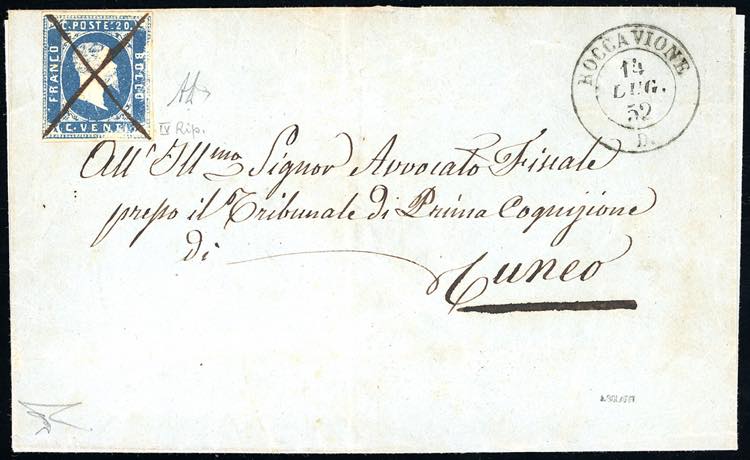 C. POSTE 20.
FRANCO
BOLLO
C. VENTI
ROCCAVIONE
14
LUG.
52
D.
IV Rip.
All' Illmo Signor Avvocato Fiscale
presso il Tribunale di Prima Cognizione
di
Cuneo